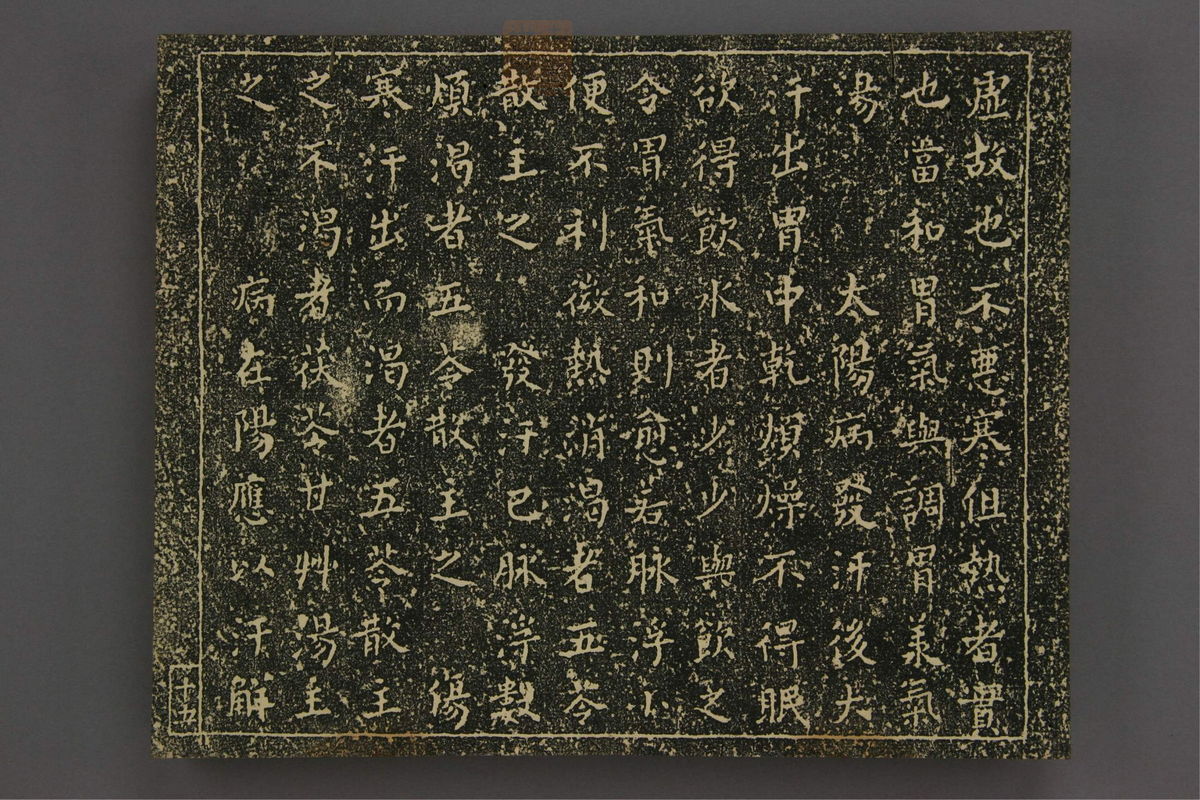 虛故也不惡寒但熱者實
也當和胃氣與調胃承氣
湯　太陽病發汗後大
汗出胃中乾煩燥不得眠
欲得飲水者少少與飲之
令胃氣和則愈若脉浮小
便不利微熱消渴者五苓
散主之　發汗已脉浮數
煩渴者五苓散主之　傷
寒汗出而渴者五苓散主
之不渴者茯苓甘艸湯主
之　病在陽應以汗解
十五